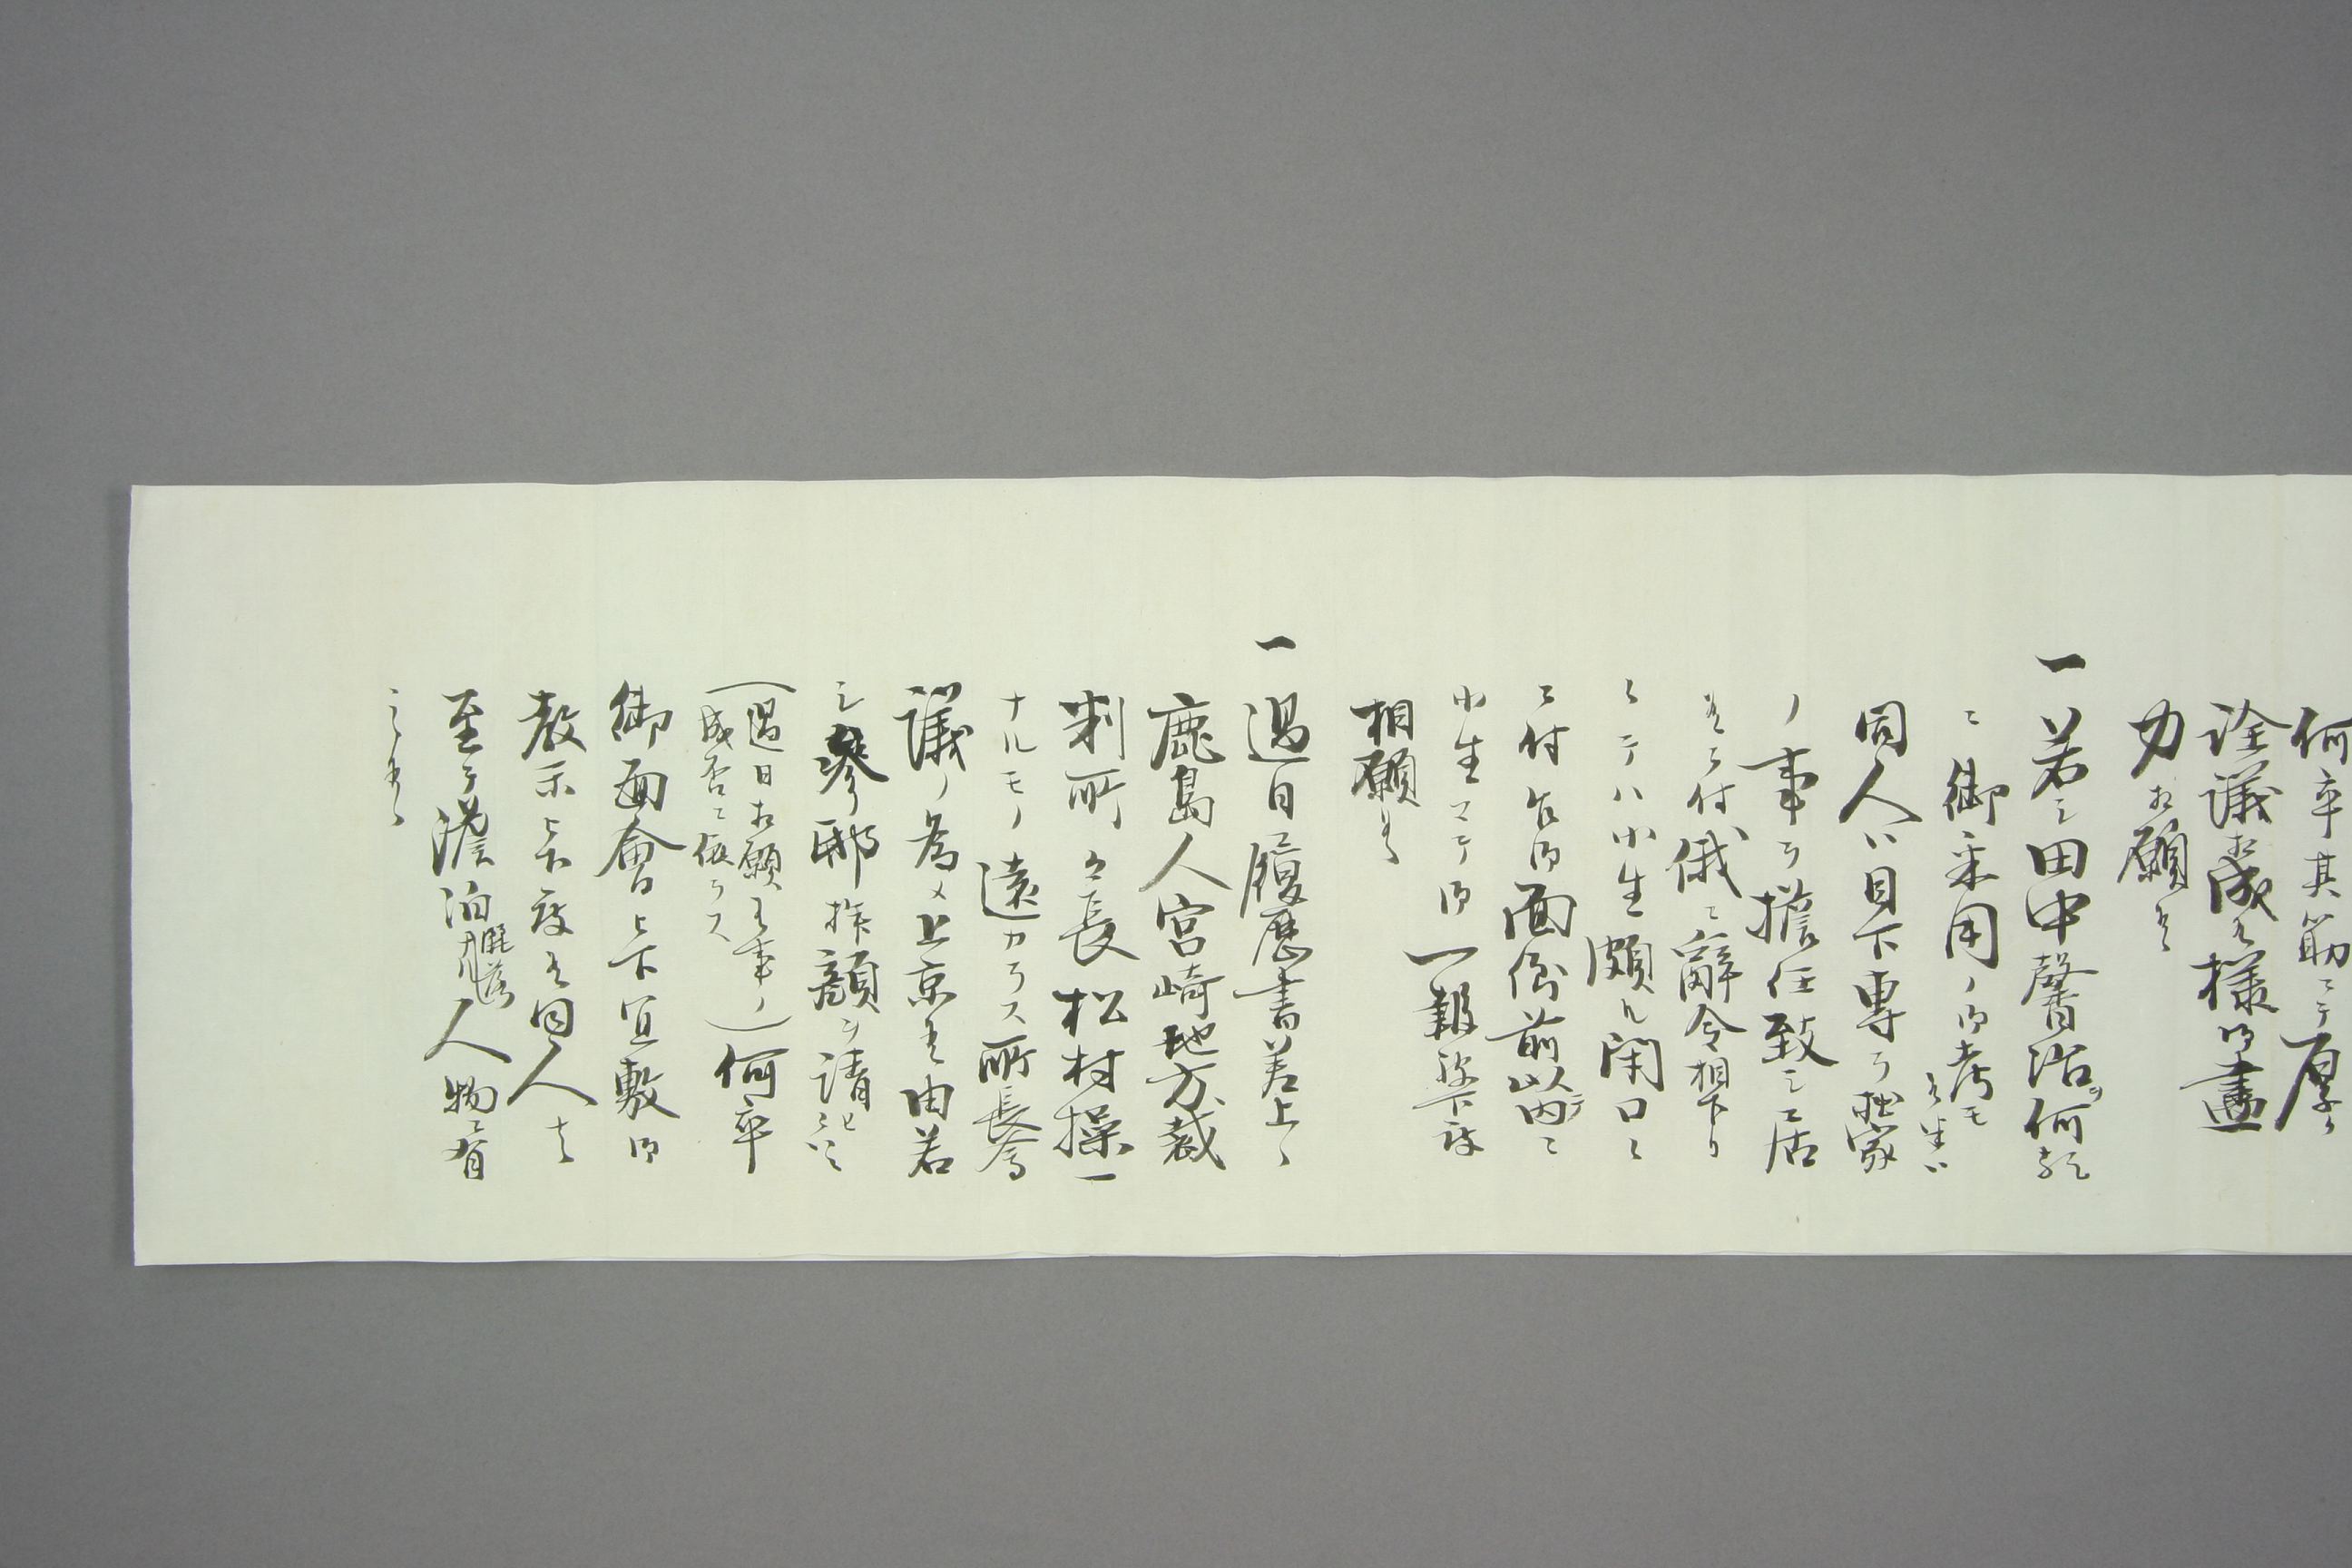 何卒其筋ニテ厚ク
詮議相成候様御盡
力相願候
一若シ田中馨治ヲ何処
ニ御采用ノ御考モ候ハヽ
同人ハ目下専ラ独家
ノ事ヲ擔任致シ居
候ニ付俄ニ辭令相下リ
候テハ小生頗ル閉口
ニ付乍御面倒前以内々ニテ
小生マテ御一報被下度
相願候
一過日履歴書差上候
鹿島人宮崎地方裁
判所々長松村操一
ナルモノ遠カラス所長會
議ノ為メ上京候由若
シ參邸拝顔ヲ請ヒ候ハヽ
(過日相願候事ノ
成否ニ係ラス)何卒
御面會被下宜敷御
教示被下度候同人ハ
至テ淡泊洒落ナル人物ニ有
之候